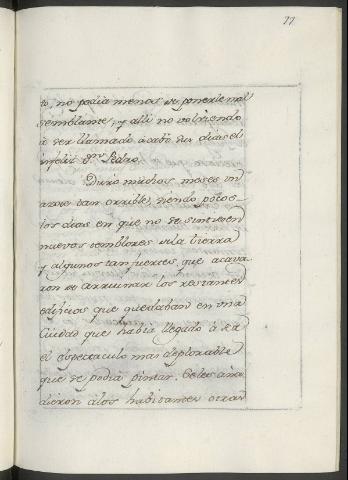 77
to, no podia menos de ponerle mal
semblante, y alli no volviendo
á ser llamado acabó sus dias el
infeliz Dn. Pedro.
Duró muchos meses un
azote tan orrible, siendo pocos
los dias en que no se sintiesen
nuevos temblores de la tierra
y algunos tan fuertes, que acava-
ron de arruinar los restantes
edificios que quedaban en una
Ciudad que habia llegado á ser
el espectaculo mas deplorable
que se podia pintar. Se les aña-
dieron á los habitantes otras